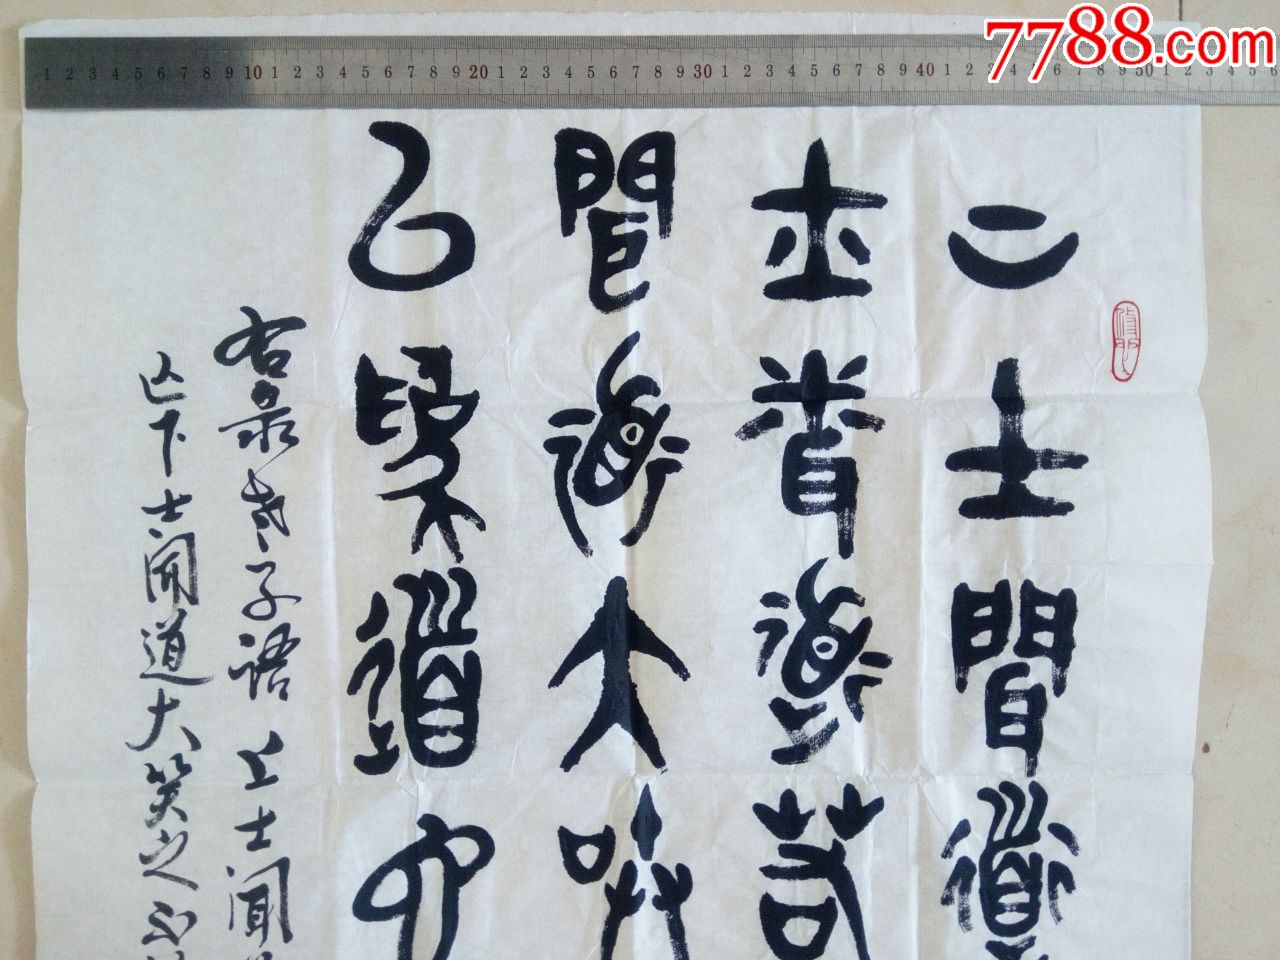 7788.com
1 2 3 4 5 6 7 8 9 10 1 2 3 4 5 6 7 8 9 20 1 2 3 4 5 6 7 8 9 30 1 2 3 4 5 6 7 8 9 40 1 2 3 4 5 6 7 8 9 50 1 2 3 4 5 6
二士聞道
道若
聞道大咲
以為道也
右录老子語上士闻
亡下士闻道大笑之不